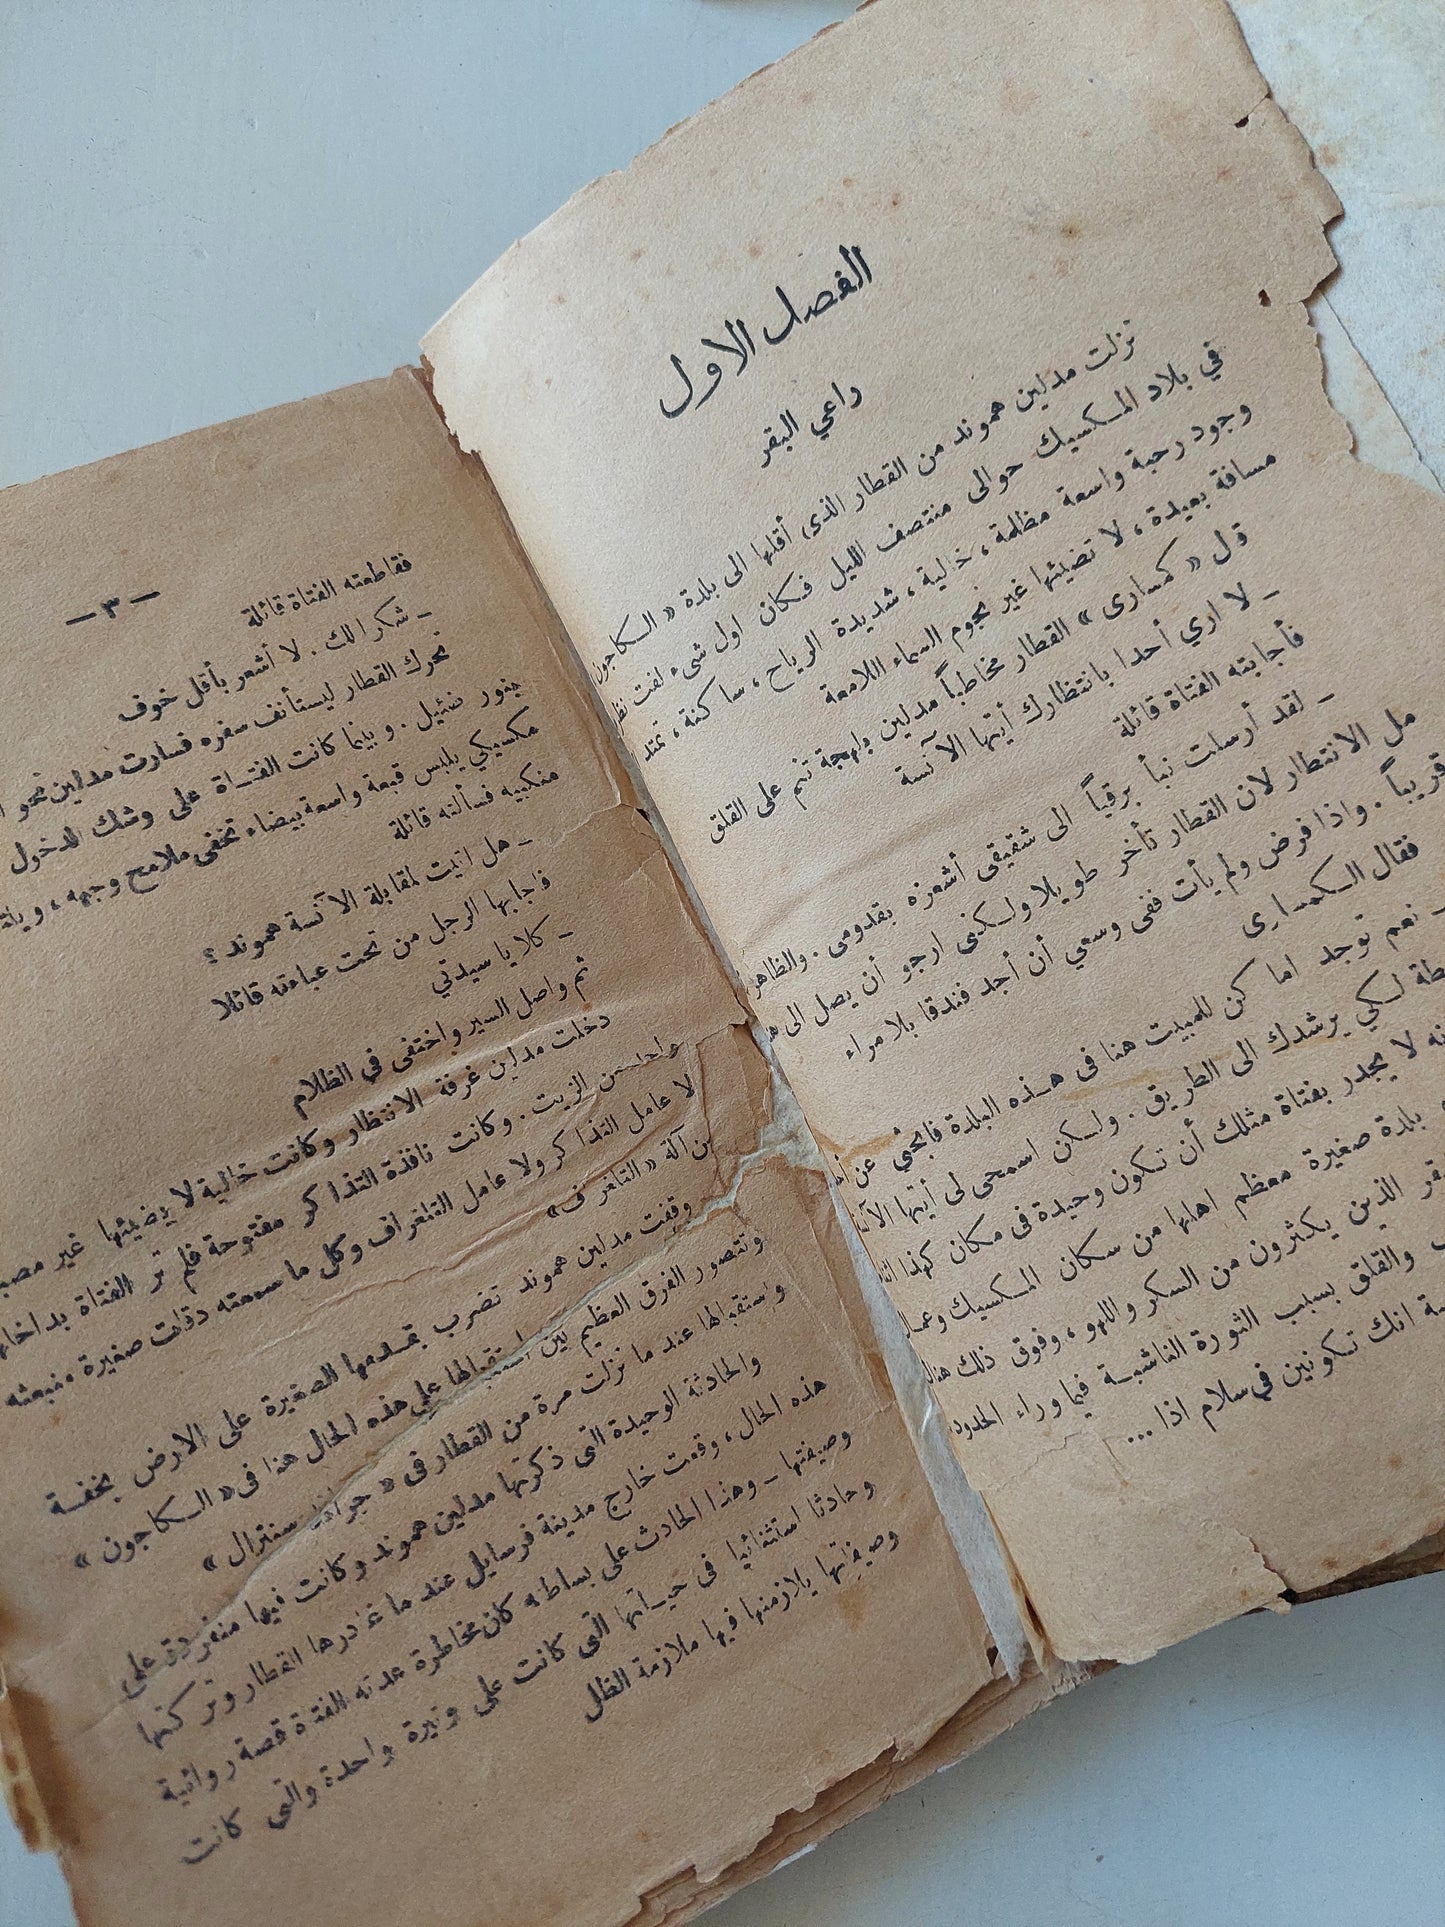 الفصل الاول
راعي البقر
نزلت مدلين هموند من القطار الذى أقلها الى بلدة « السكاجون
في بلاد المكسيك حوالى منتصف الليل فكان اول شىء لفت نظر
وجود رحبة واسعة مظلمة ، خالية ، شديدة الرياح ، ساكنة ، تمتد
مسافة بعيدة ، لا تضيئها غير نجوم السماء اللامعة
قل « كمسارى » القطار مخاطباً مدلين بلهجة تنم على القلق
ــ لا ارى أحدا بانتظارك أيتها الآنسة
فأجابته الفتاة قائلة
ــ لقد أرسلت نبأ برقياً الى شقيقى أشعره بقدومى . والظاهر
مل الانتظار لان القطار تأخر طويلا ولكنى ارجو أن يصل الى
قريباً . واذا فرض ولم يأت ففى وسعي أن أجد فندقا بلا مراء
فقال الكمسارى
ــ نعم توجد اماكن للمبيت هنا فى هذه البلدة فابحثي عن
لكي يرشدك الى الطريق . ولكن اسمحى لى أيتها
لا يجدر بفتاة مثلك أن تكون وحيدة فى مكان كهذا
بلدة صغيرة معظم اهلها من سكان المكسيك وعمال
الذين يكثرون من السكر واللهو ، وفوق ذلك
والقلق بسبب الثورة الناشبة فيما وراء الحدود
انك تكونين في سلام اذا ...
ــ ٣ ــ
فقاطعته الفتاة قائلة
ــ شكرا لك . لا أشعر بأقل خوف
تحرك القطار ليستأنف سفره فسارت مدلين نحو
بنور ضئيل . وبينما كانت الفتاة على وشك الدخول
مكسيكي يلبس قبعة واسعة بيضاء تخفى ملامح وجهه ،
منكبيه فسألته قائلة
ــ هل اتيت لمقابلة الآنسة هموند ؟
فاجابها الرجل من تحت عباءته قائلا
ــ كلا يا سيدتي
ثم واصل السير واختفى في الظلام
دخلت مدلين غرفة الانتظار وكانت خالية لا يضيئها غير
من الزيت . وكانت نافذة التذاكر مفتوحة فلم تر الفتاة بداخلها
لا عامل التذاكر ولا عامل التلغراف وكل ما سمعته دقات صغيرة منبعثه
من آلة « التلغراف »
وقفت مدلين هموند تضرب بقدمها الصغيرة على الارض بخفة
وتتصور الفرق العظيم بين استقبالها على هذه الحال هذا فى « السكاجون »
واستقبالها عند ما نزلت مرة من القطار فى « جراند سنترال »
والحادثة الوحيدة التى ذكرتها مدلين هموند وكانت فيها منفردة على
هذه الحال ، وقعت خارج مدينة فرسايل عند ما غادرها القطار وتركتها
وصيفتها ــ وهذا الحادث على بساطته كان مخاطرة عدته الفتاة قصة روائية
وحادثا استثنائيا فى حياتها التى كانت على وتيرة واحدة والتى كانت
وصيفاتها يلازمنها فيها ملازمة الظل